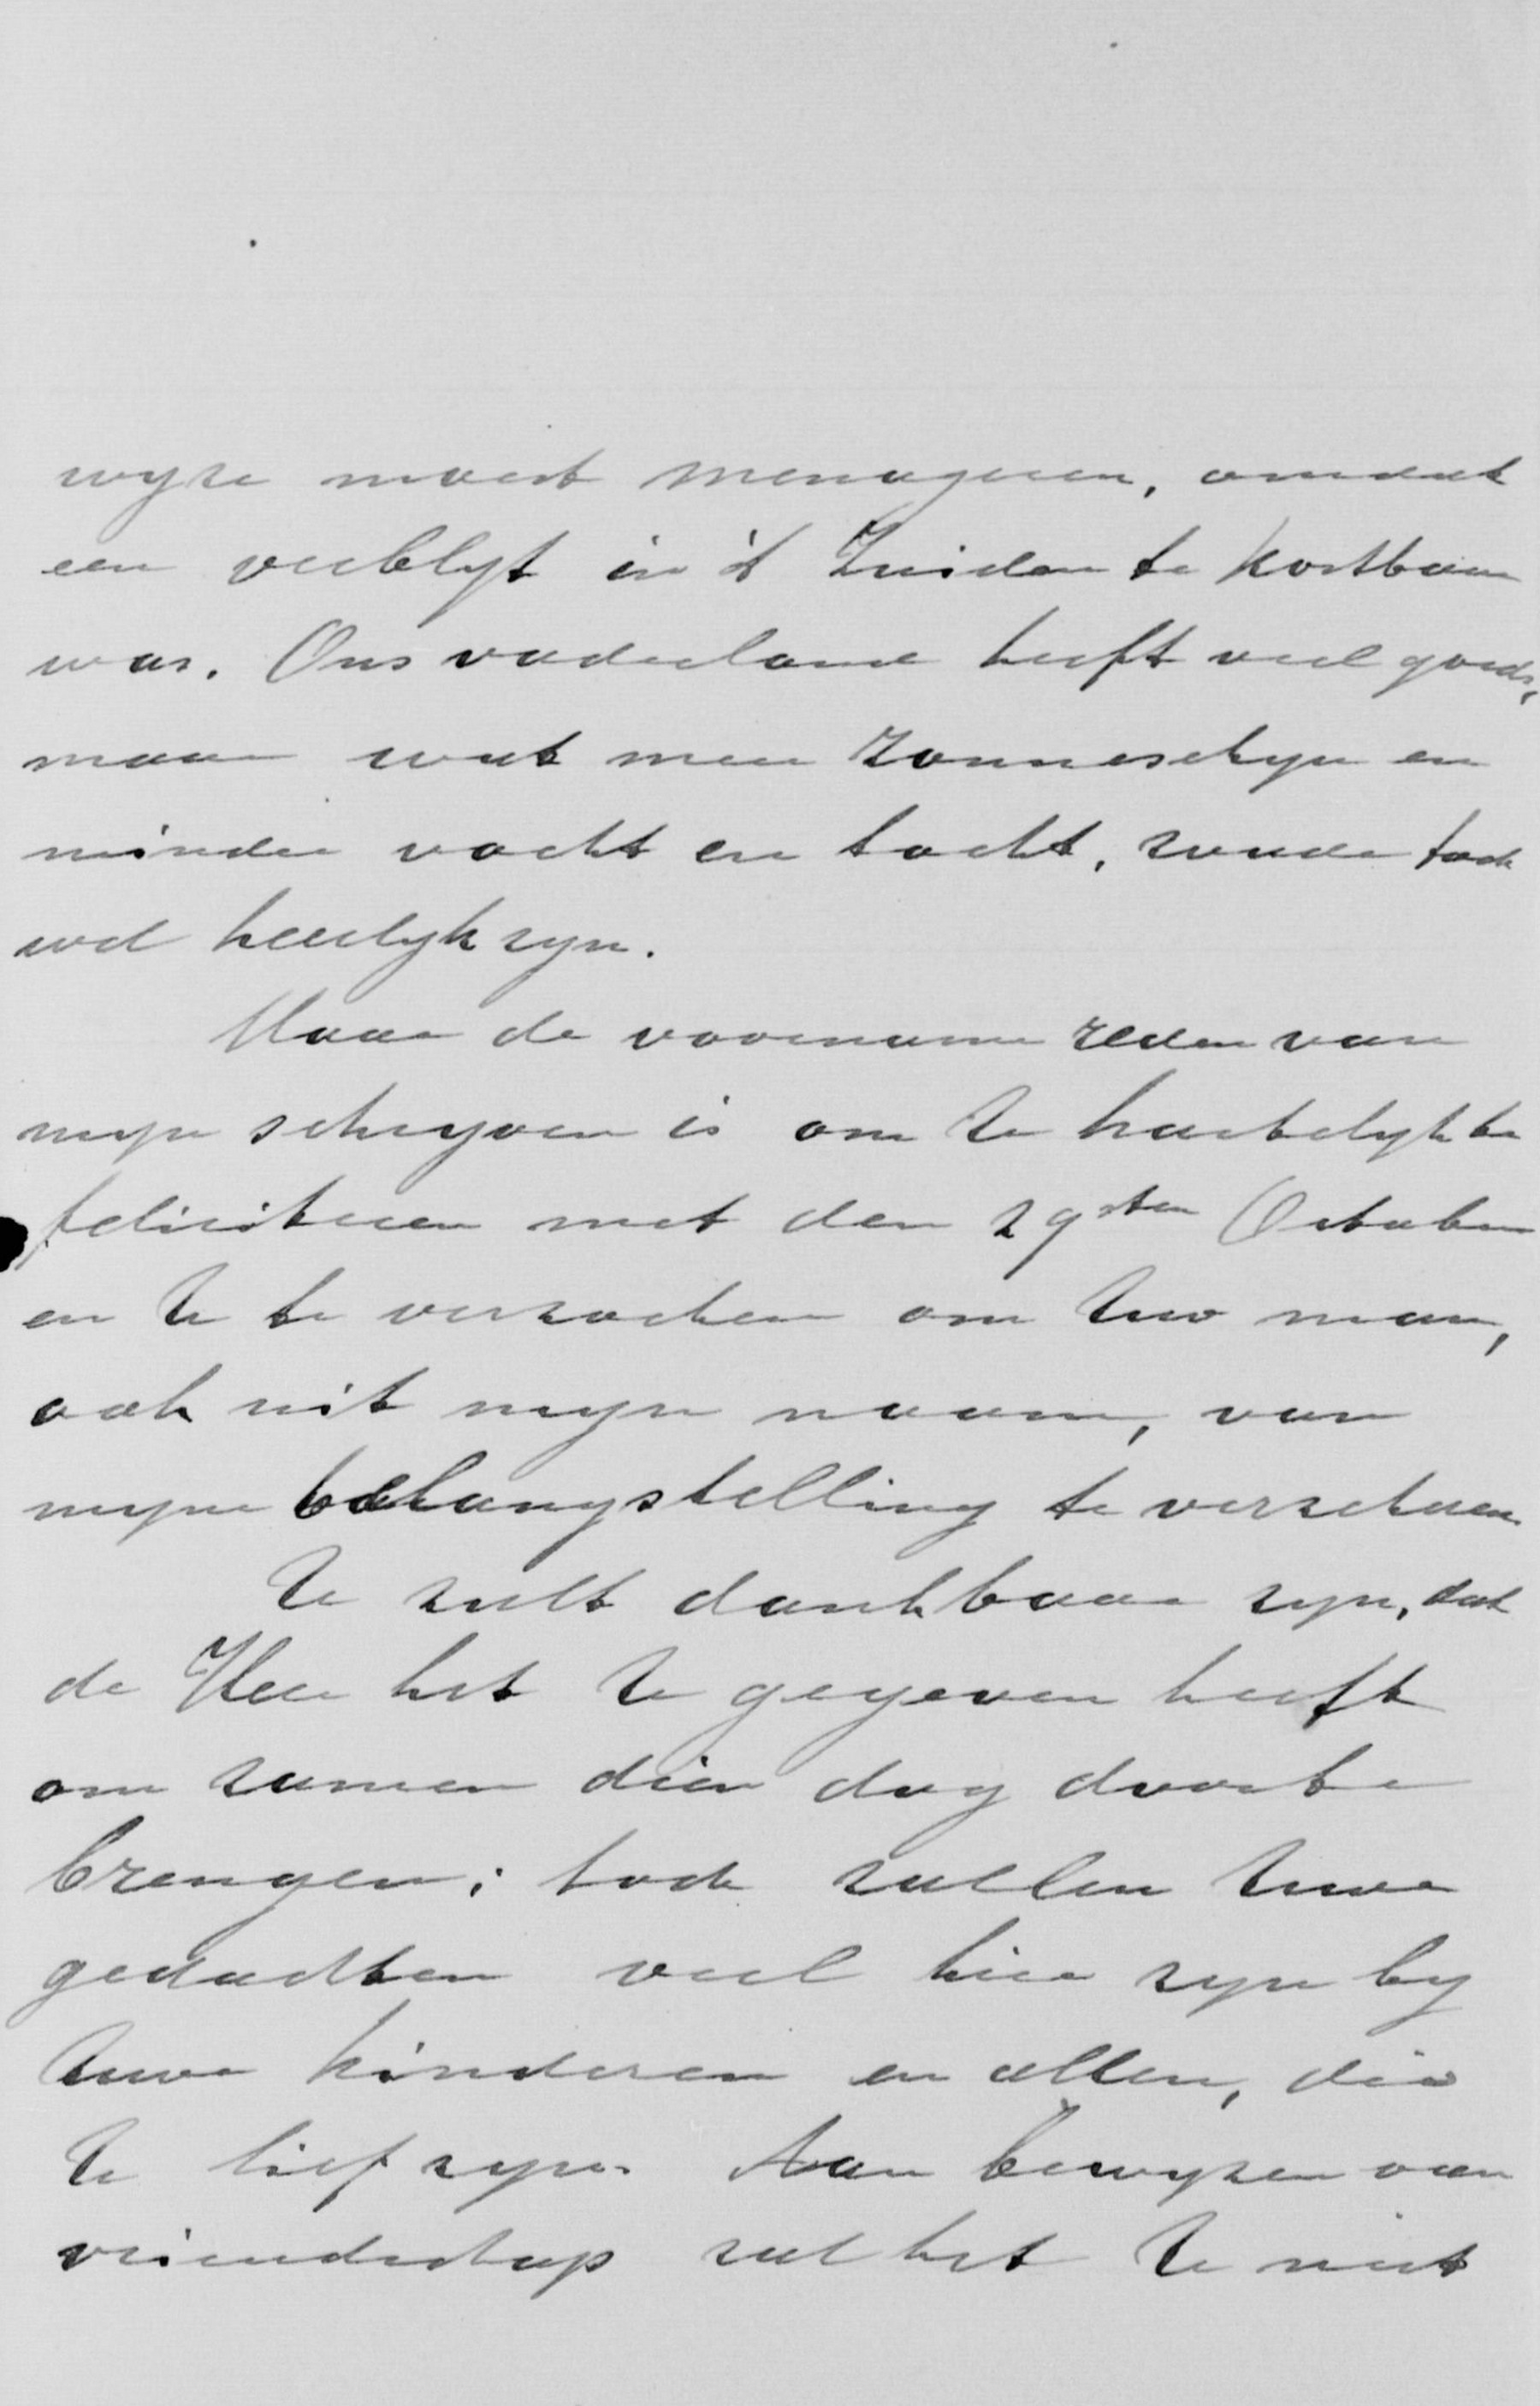 wyze moest menageeren, omdat
een verblyf in 't Zuiden te kostbaar
was. Ons vaderland heeft veel goeds,
maar wat meer zonneschyn en
minder vocht en tocht, zoude toch
wel heerlyk zyn.
Maar de voorname reden van
myn schryven is om U hartelyk te
feliciteeren met den 29sten October
en U te verzoeken om Uw man,
ook uit myn naam, van
myne belangstelling te verzekeren.
U zult dankbaar zyn, dat
de Heer het U gegeven heeft
om samen dien dag door te
brengen; toch zullen Uwe
gedachten veel hier zyn by
Uwe kinderen en allen, die
U lief zyn. Aan bewyzen van
vriendschap zal het U niet